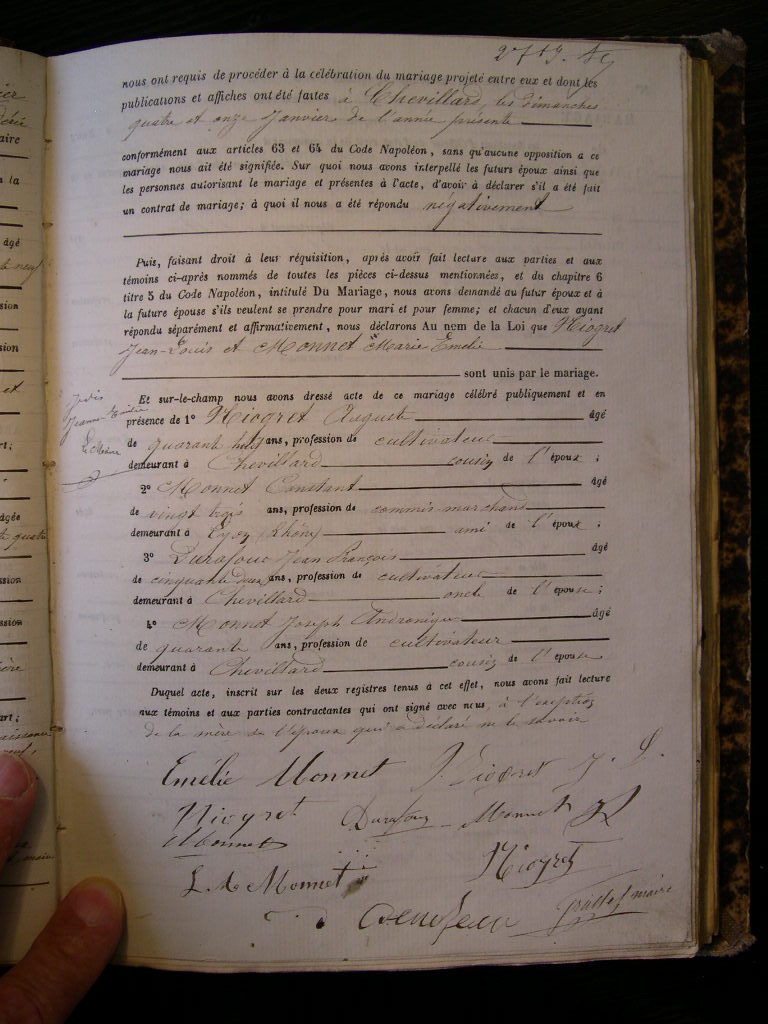 nous ont requis de procéder à la célébration du mariage projeté entre eux et dont les
publications et affiches ont été faites à Chevillard, les dimanches
quatre et onze Janvier de l'année présente
conformément aux articles 63 et 64 du Code Napoléon, sans qu'aucune opposition a ce
mariage nous ait été signifiée. Sur quoi nous avons interpellé les futurs époux ainsi que
les personnes autorisant le mariage et présentes à l'acte, d'avoir à déclarer s'il a été fait
un contrat de mariage; à quoi il nous a été répondu négativement
Puis, faisant droit à leur réquisition, après avoir fait lecture aux parties et aux
témoins ci-après nommés de toutes les pièces ci-dessus mentionnées, et du chapitre 6
titre 5 du Code Napoléon, intitulé Du Mariage, nous avons demandé au futur époux et à
la future épouse s'ils veulent se prendre pour mari et pour femme; et chacun d'eux ayant
répondu séparément et affirmativement, nous déclarons Au nom de la Loi que Niogret
Jean-Louis et Monnet Marie Emélie
sont unis par le mariage.
Et sur-le-champ nous avons dressé acte de ce mariage célébré publiquement et en
présence de 1° Niogret Auguste âgé
de quarant huit ans, profession de cultivateur
demeurant à Chevillard cousin de l'époux;
2° Monnet Constant âgé
de vingt trois ans, profession de commis marchand
demeurant à Lyon (Rhône) ami de l'époux;
3° Durafour Jean François âgé
de cinquante deux ans, profession de cultivateur
demeurant à Chevillard oncle de l'épouse;
4° Monnet Joseph Andronique âgé
de quarante ans, profession de cultivateur
demeurant à Chevillard cousin de l'épouse
Duquel acte, inscrit sur les deux registres tenus à cet effet, nous avons fait lecture
aux témoins et aux parties contractantes qui ont signé avec nous, à l'exception
de la mère de l'époux qui a déclaré ne le savoir
Emélie Monnet J. Niogret J. L.
Niogret Durafour Monnet
Monnet
L. A. Monnet Niogret
maire